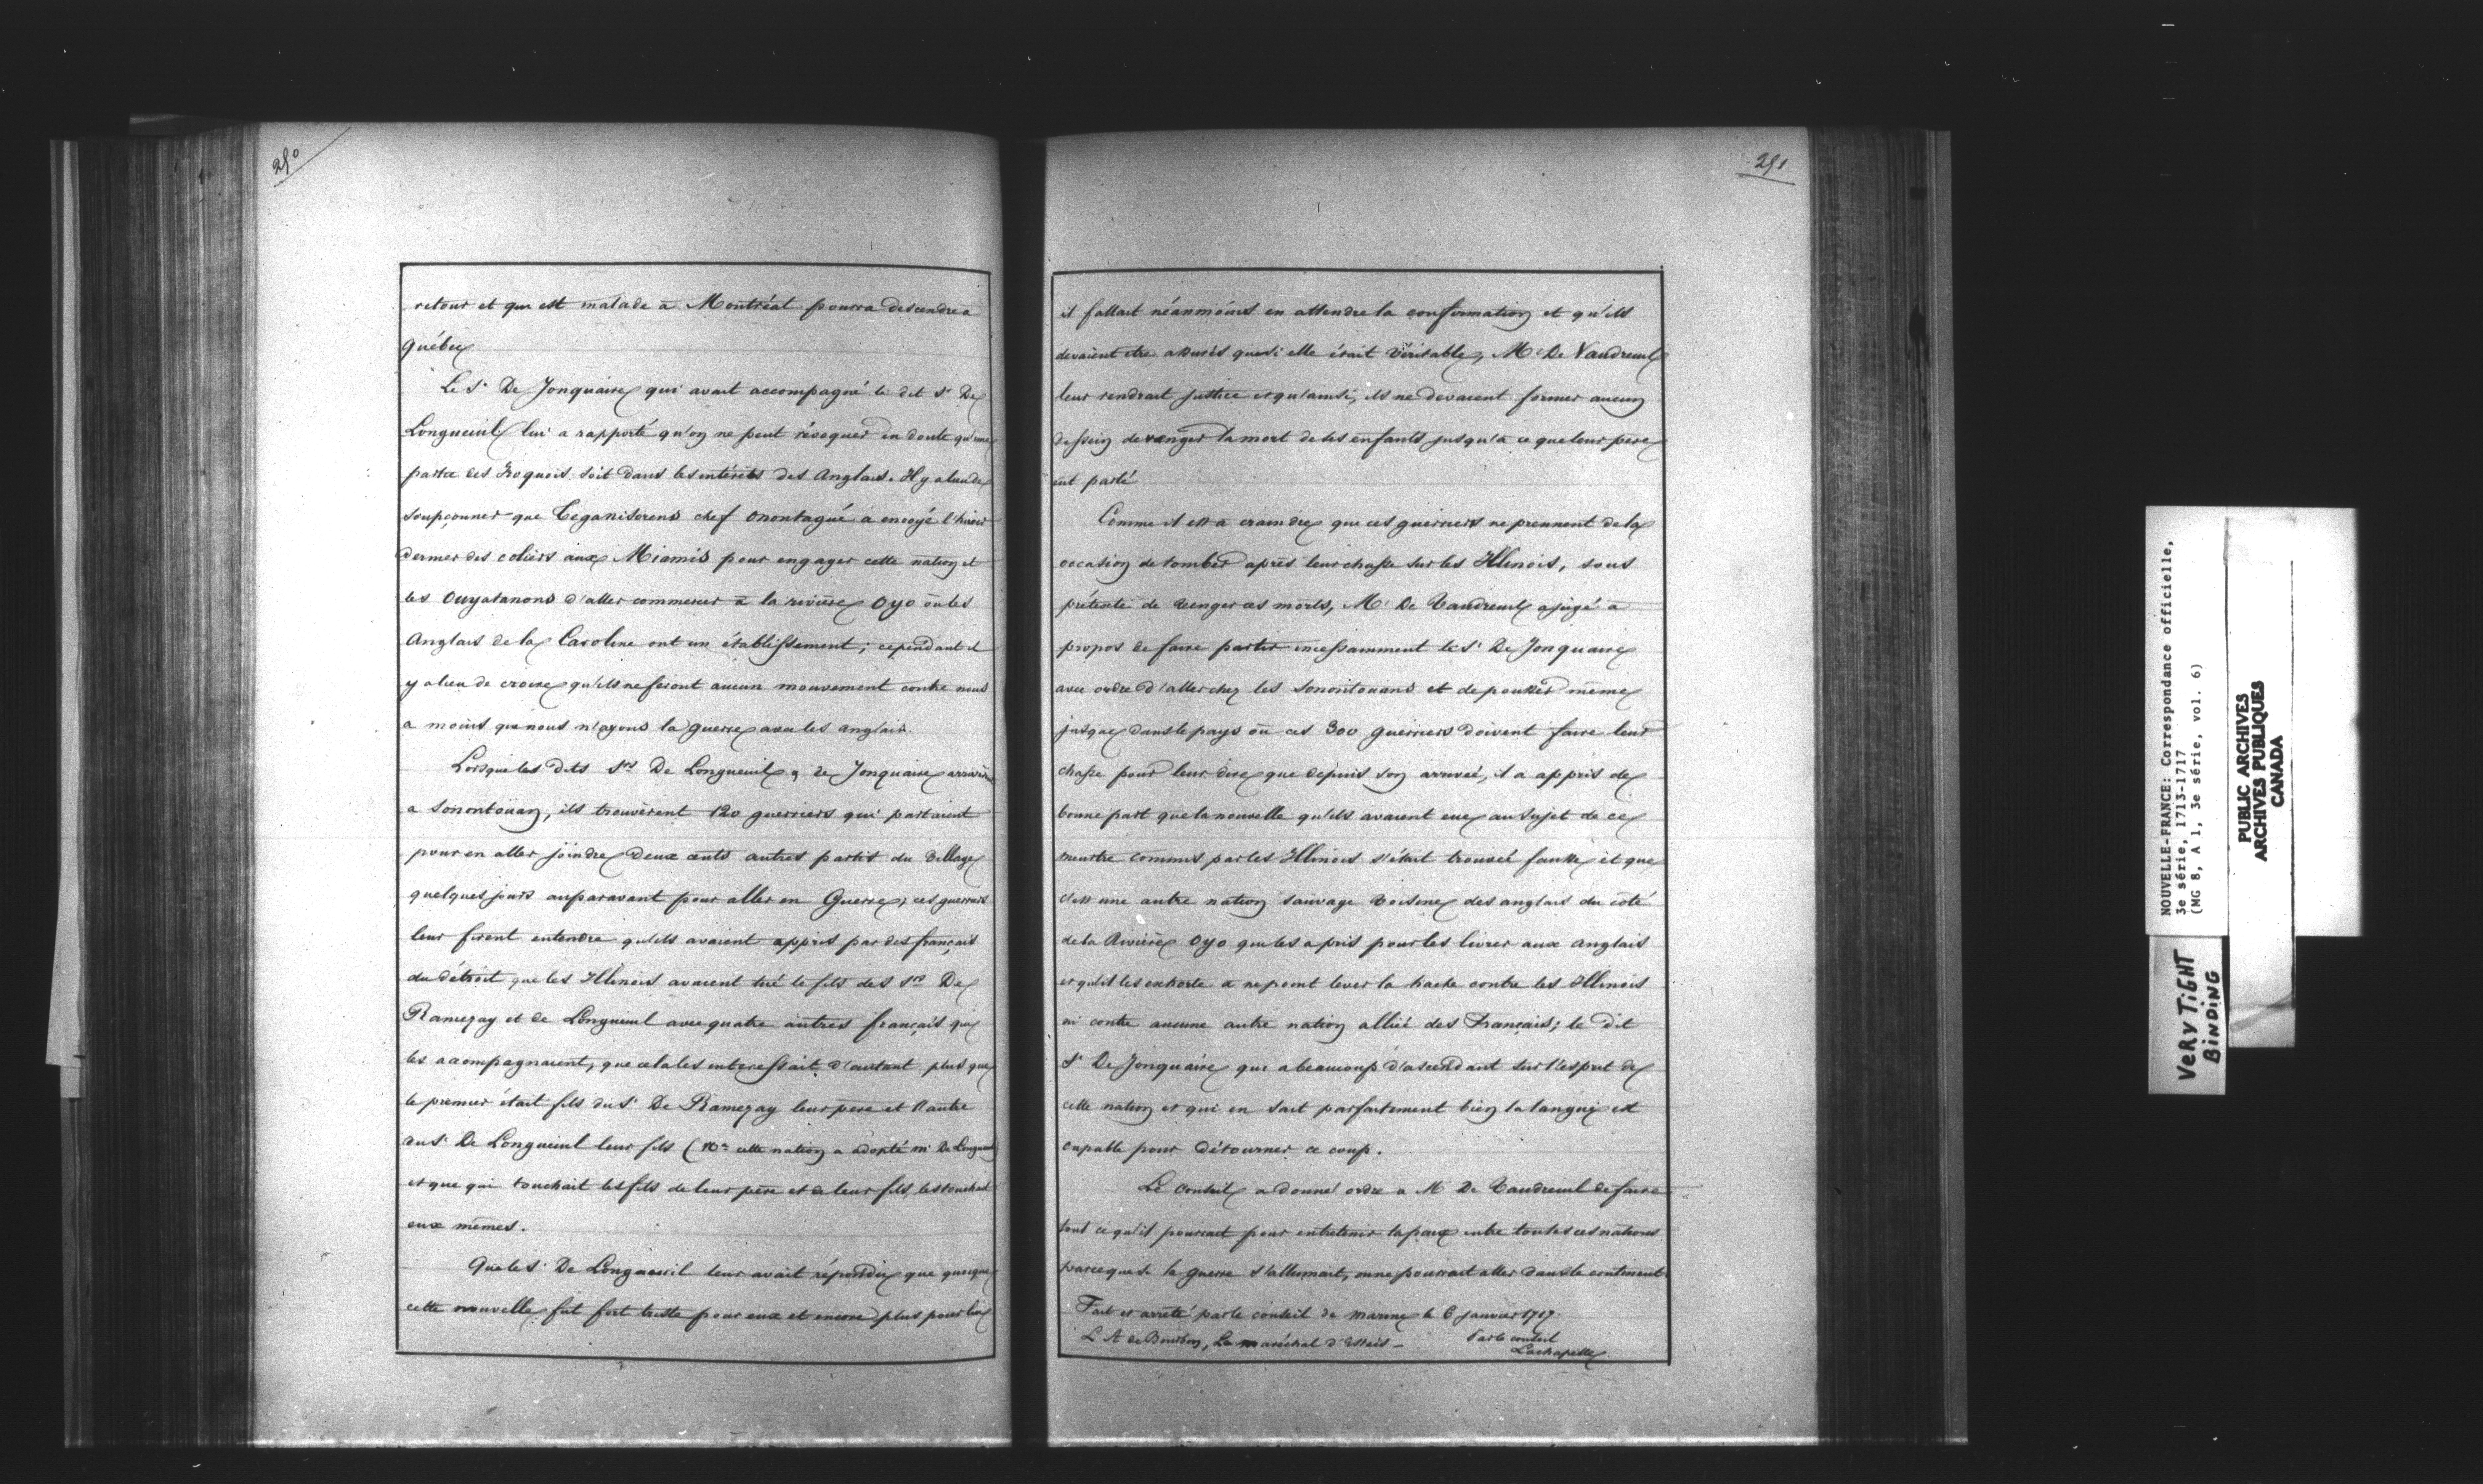 250
retour et qui est malade a Montréal pourra descendre a
Québec
Le Sr De Jonquaire qui avait accompagné le dit Sr De
Longueuil lui a rapporté qu'on ne peut révoquer en doute qu'une
partie des Iroquois soit dans les intérêts des Anglais. Il y a lieu de
soupçonner que Teganisorens chef onontagué a envoyé l'hiver
dernier des coliers aux Miamis pour engager cette nation et
les Ouyatanons d'aller commercer à la rivière Oyo où les
Anglais de la Caroline ont un établissement; cependant il
y a lieu de croire qu'ils ne feront aucun mouvement contre nous
a moins que nous n'ayons la guerre avec les anglais.
Lorsque les dits Srs De Longueuil & de Jonquaire arrivèrent
a Sonontouan, ils trouvèrent 120 guerriers qui partaient
pour en aller joindre deux cents autres partis du village
quelques jours auparavant pour aller en Guerre; ces guerriers
leur firent entendre qu'ils avaient appris par des français
du détroit que les Illinois avaient tué le fils des Srs De
Ramezay et de Longueuil avec quatre autres français qui
les accompagnaient, que cela les interessait d'autant plus que
le premier était fils du Sr De Ramezay leur père et l'autre
du Sr De Longueuil leur fils (Na cette nation a adopté Mr De Longueuil
et que qui touchait les fils de leur père et de leur fils, les touchait
eux mêmes.
Que le Sr De Longueuil leur avait répondu que quoique
cette nouvelle fut fort triste pour eux et encore plus pour lui
251
il fallait néanmoins en attendre la confirmation et qu'ils
devaient être assurés que si elle était véritable, Mr De Vaudreuil
leur rendrait justice et qu'ainsi, ils ne devaient former aucun
dessein de venger la mort de ses enfants jusqu'à ce que leur père
eut parlé
Comme il est a craindre que ces guerriers ne prennent de la
occasion de tomber après leur chasse sur les Illinois, sous
prétexte de venger ces morts, Mr De Vaudreuil a jugé à
propos de faire partir incessamment le Sr De Jonquaire
avec ordre d'aller chez les Sonontouans et de pousser même
jusque dans le pays où ces 300 guerriers doivent faire leur
chasse pour leur dire que depuis son arrivée, il a appris de
bonne part que la nouvelle qu'ils avaient eue au sujet de ce
meurtre commis par les Illinois s'était trouvée fausse et que
c'est une autre nation sauvage voisine des anglais du côté
de la Rivière Oyo qui les a pris pour les livrer aux anglais
et qu'il les exhorte a ne point lever la hache contre les Illinois
ni contre aucune autre nation alliée des Français; le dit
Sr De Jonquaire qui a beaucoup d'ascendant sur l'esprit de
cette nation et qui en sait parfaitement bien la langue est
capable pour détourner ce coup.
Le Conseil a donné ordre a Mr De Vaudreuil de faire
tout ce qu'il pourrait pour entretenir la paix entre toutes ces nations
parceque si la guerre s'allumait, on ne pourrait aller dans le continent
Fait et arrêté par le conseil de marine le 6 janvier 1717.
L A de Bourbon, Le maréchal d'Estrées - Par le conseil
Lachapelle
NOUVELLE-FRANCE: Correspondance officielle,
3e série, 1713-1717
(MG 8, A 1, 3e série, vol. 6)
PUBLIC ARCHIVES
ARCHIVES PUBLIQUES
CANADA
VERY TIGHT
BINDING